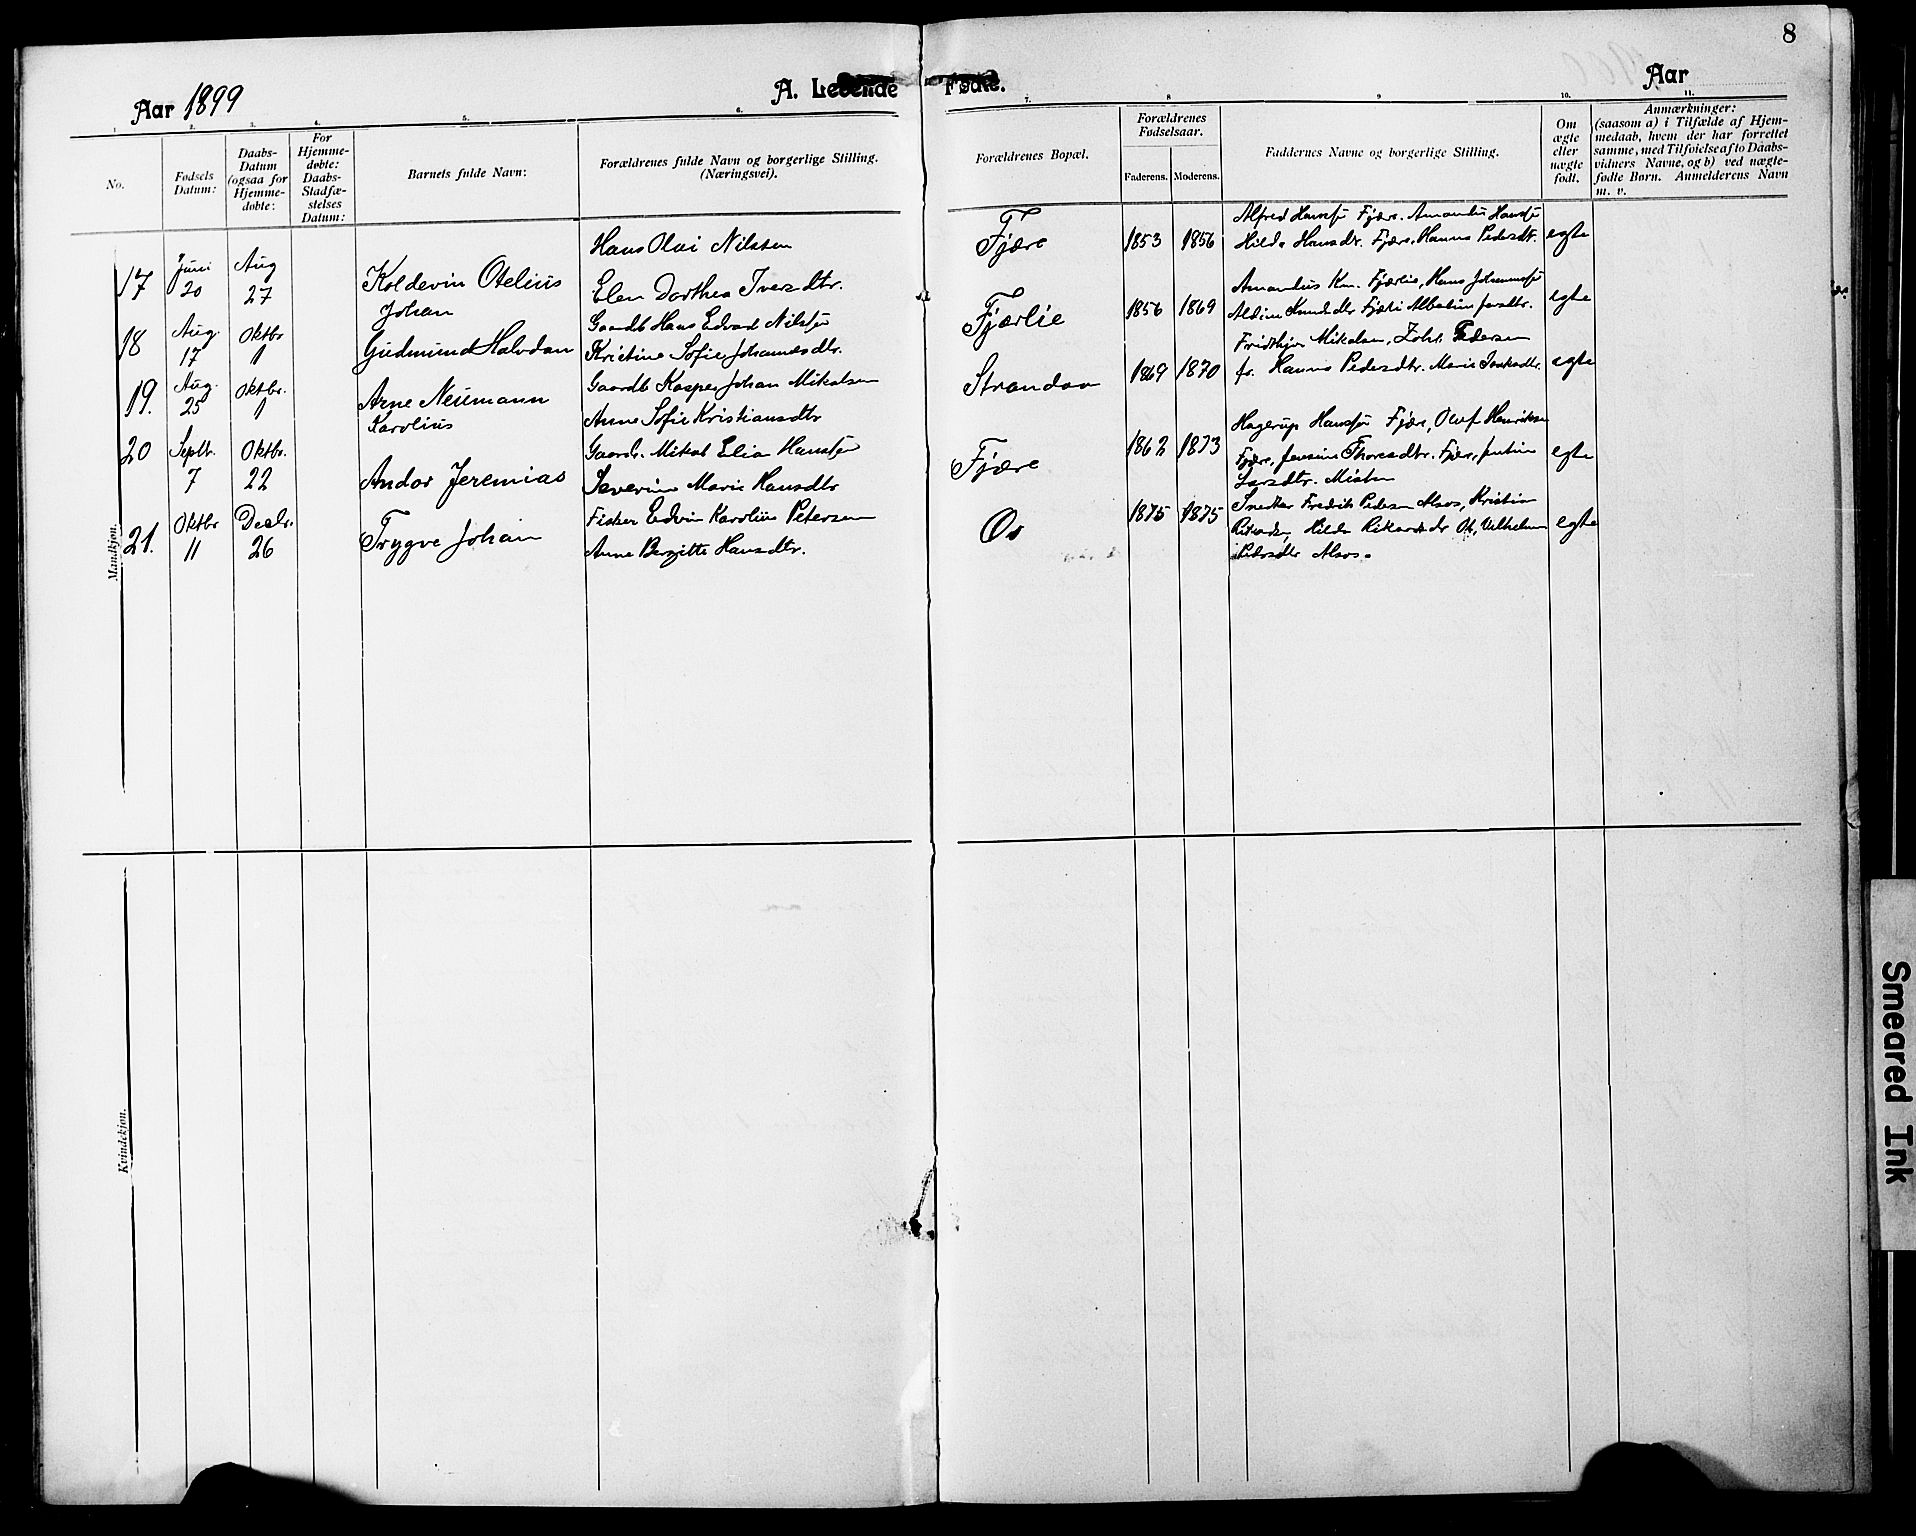 8
Aar 1899
A. Levende Fødte.
Aar
1.
2.
3.
4.
5.
6.
7.
8
9
10.
11.
No.
Fødsels Datum:
Daabs-
Datum
(ogsaa for
Hjemme-
døbte:
For
Hjemme-
døbte:
Daabs-
Stadfæ-
stelses
Datum:
Barnets fulde Navn:
Forældrenes fulde Navn og borgerlige Stilling.
(Næringsvei).
Forældrenes Bopæl.
Forældrenes
Fødselsaar.
Faderens. Moderens.
Faddernes Navne og borgerlige Stilling.
Om
ægte
eller
uægte
født.
Anmærkninger:
(saasom a) i Tilfælde af Hjem-
medaab, hvem der har forrettet
samme, med Tilføielse af to Daabs-
vidners Navne, og b) ved uægte-
fødte Børn. Anmelderens Navn
m. v.
Mandkjøn.
17
Juni
20
Aug
27
Koldevin Otelius
Johan
Hans Olai Nilsen
Elen Dorthea Iversdtr.
Fjære
1853 1856
Alfred Hanssen Fjære. Amandus Hanssen
Hilda Hansdtr. Fjære. Hanna Pedersdtr.
egte
18
Aug.
17
Oktbr
1
Gudmund Halvdan
Gaardb Hans Edvard Nilsen
Kristine Sofie Johannesdtr.
Fjærlie
1856 1869
Amandus Kn. Fjærlie, Hans Johannessen
egte
19.
Aug.
25
Oktbr.
1
Arne Neumann
Karolius
Gaardb Kasper Johan Mikalsen
Anne Sofie Kristiansdtr
Strandaa
1869 1870
Fridthjov Mikalsen, Pedersen
fr. Hanna Pedersdtr. Marie
egte
20
Septb.
7
Oktbr.
22
Andor Jeremias
Gaardb. Mikal Elia Hanssen
Severine Marie Hansdtr
Fjære
1862 1873
Hagerup Hanssen Fjære, Oluf Henriksen
Fjære, Jensine Thoresdtr. Fjære,
Larsdtr. Misten
egte
21.
Oktbr
11
Decbr.
26
Trygve Johan
Fisker Edvin Karolius Petersen
Anne Bergitte Hansdtr.
Os
1875 1875
Snedker Fredrik Pedersen Alsos, Kristin
Hilda Rikardsdtr Os, Vilhelmine
Pedersdtr Alsos.
egte
Kvindekjøn.
Smeared Ink